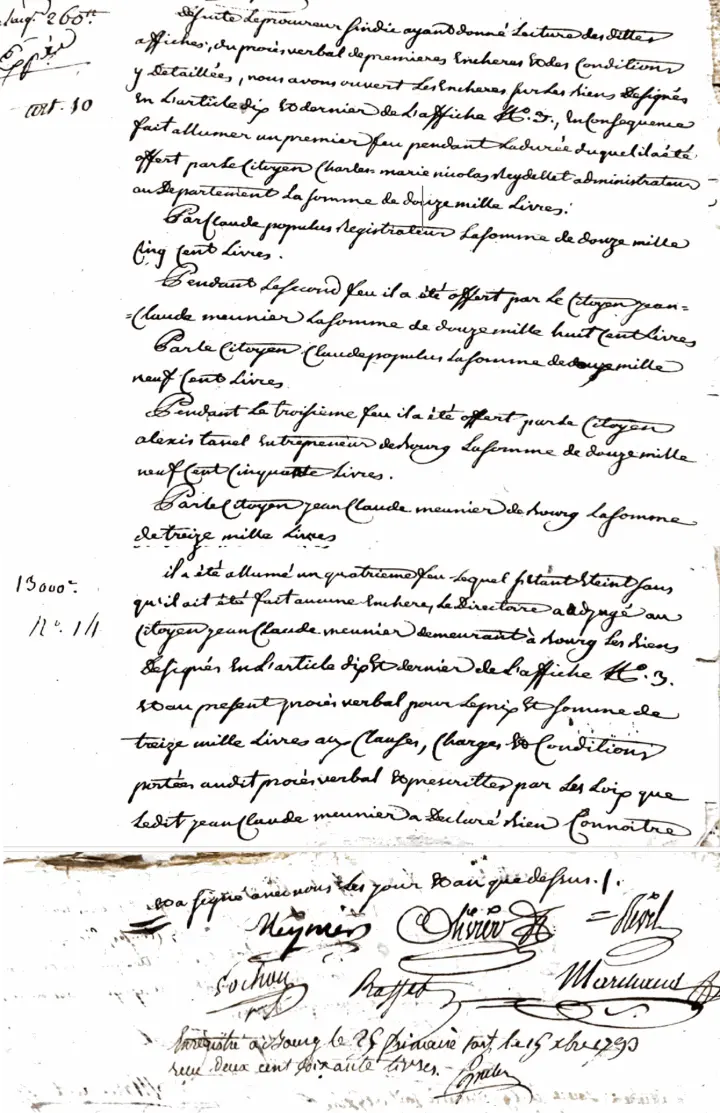 260tt
art. 10
De suite Le procureur sindic ayant donné Lecture des dittes
affiches, du procès verbal de premieres Encheres Et des Conditions
y Detaillées, nous avons ouvert Les Encheres sur Les Biens Designés
En L'article dix Et dernier de L'affiche No. 3, En Consequence
fait allumer un premier feu pendant La durée du quel il a été
offert par Le Citoyen Charles marie nicolas Reydellet administrateur
au Departement La somme de douze mille Livres.
Par Claude populus Registrateur La somme de douze mille
Cinq Cent Livres.
Pendant Le second feu il a été offert par Le Citoyen jean=
=Claude meunier La somme de douze mille huit Cent Livres
Par Le Citoyen Claude populus La somme de douze mille
neuf Cent Livres
Pendant Le troisieme feu il a été offert par Le Citoyen
alexis tavel Entrepreneur de Bourg La somme de douze mille
neuf Cent Cinquante Livres.
Par Le Citoyen jean Claude meunier de Bourg La somme
de treize mille Livres
il a été allumé un quatrieme feu Lequel s'étant Eteint sans
13000tt
qu'il ait été fait aucune Enchere, Le Directoire a adjugé au
No. 14
Citoyen jean Claude meunier demeurant à Bourg Les Biens
Designés En L'article dix Et dernier de L'affiche No. 3.
Et au present procès verbal pour Le prix Et somme de
treize mille Livres aux Clauses, Charges Et Conditions
portées audit procès verbal Et prescrittes par Les Loix que
Ledit jean Claude meunier a Declaré Bien Connoitre
Et a signé avec nous Les jour Et an que dessus./.
Meunier Olivier
Cochon Rasset Marchand
Enregistré à Bourg le 25 frimaire soit le 15 xbre 1793
reçu deux cent soixante livres.